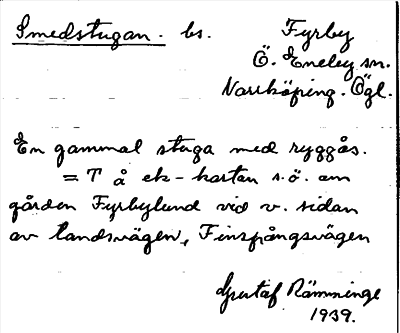 Smedstugan. bs. Fyrby
Ö. Eneby sn.
Norrköping. Ögl.
En gammal stuga med ryggås.
= T å ek-kartan s.ö. om
gården Fyrbylund vid v. sidan
av landsvägen, Finspångsvägen
Gustaf Rämninge
1939.